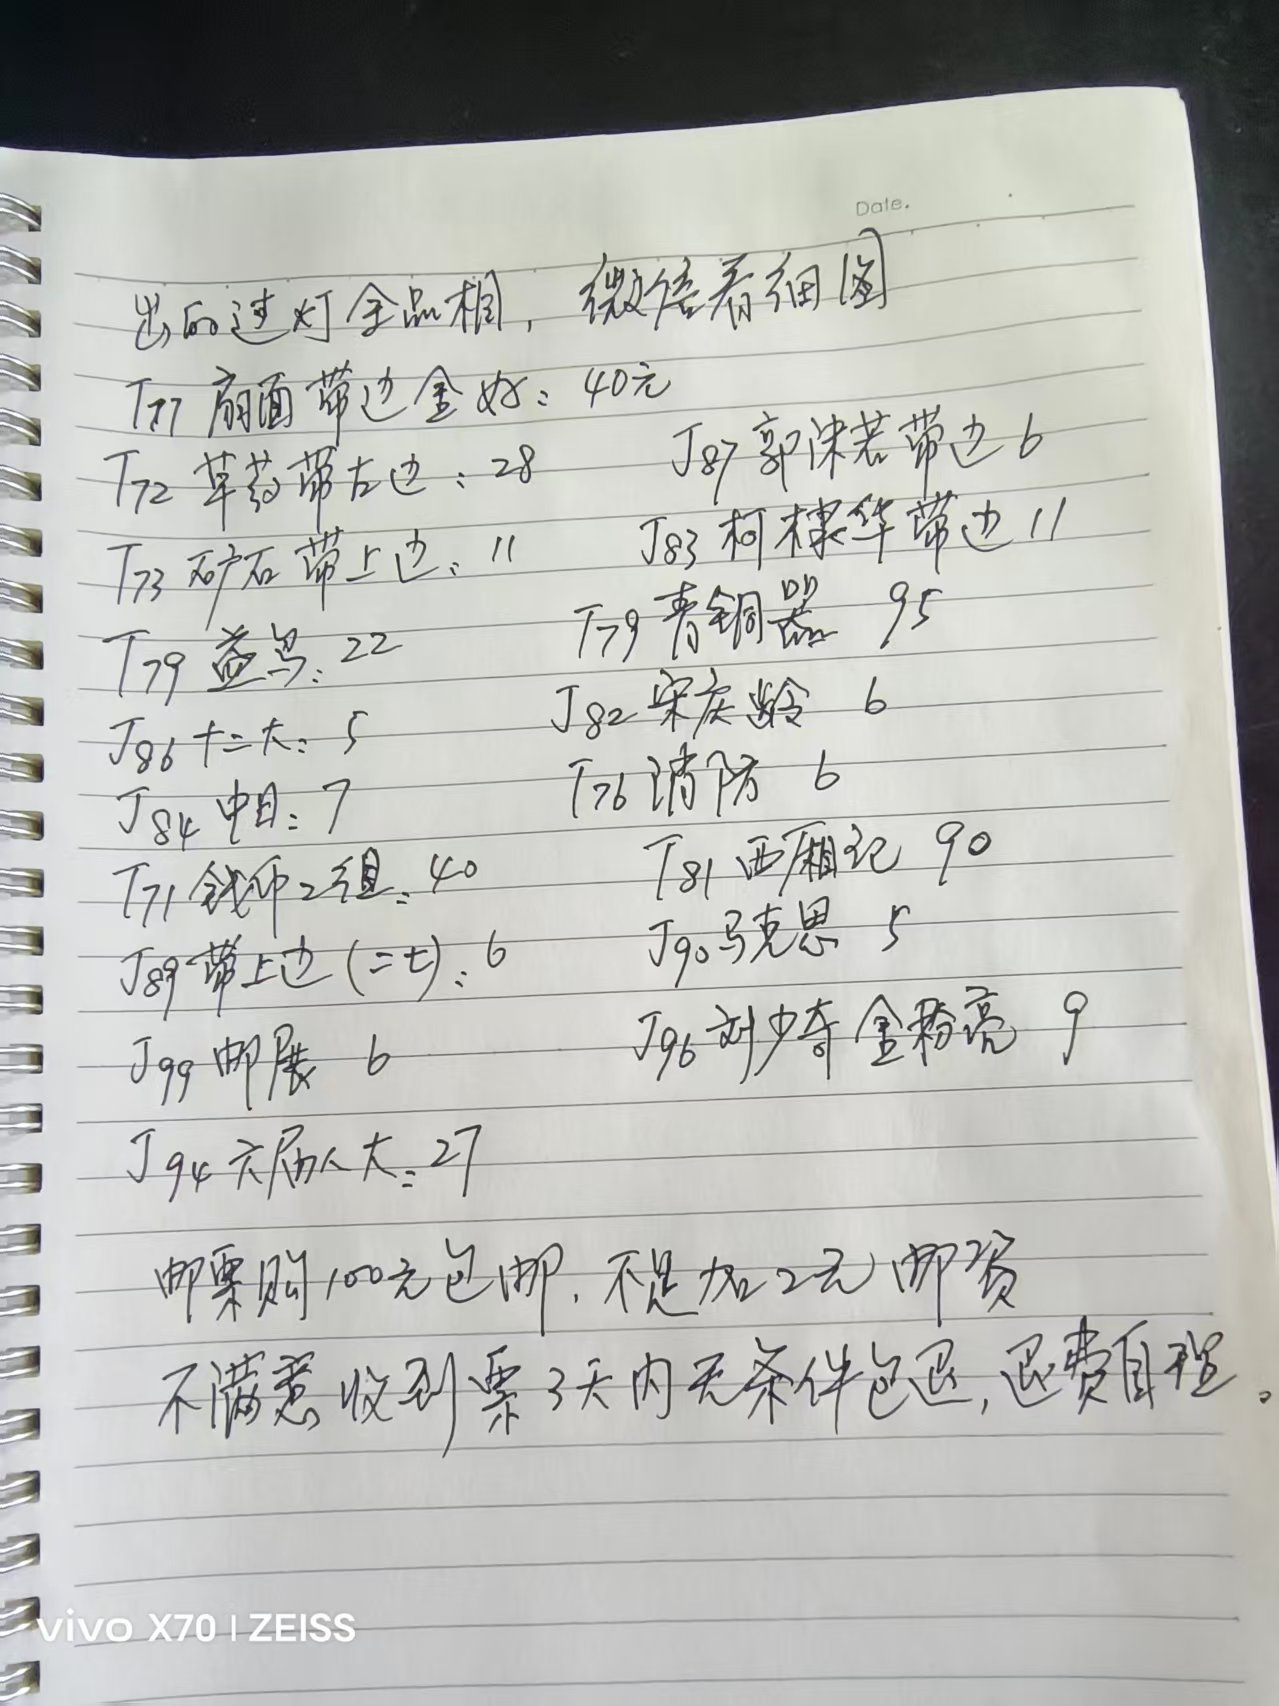 Date.
出的过灯全品相，微信看细图
T77 扇面带边金好：40元
T72 草药带左边：28 J87 郭沫若带边 6
T73 矿石带上边：11 J83 柯棣华带边 11
T79 益鸟：22 T79 青铜器 95
J86 十二大：5 J82 宋庆龄 6
J84 中日：7 T76 消防 6
T71 钱币2组：40 T81 西厢记 90
J89 带上边（二七）：6 J90 马克思 5
J99 邮展 6 J96 刘少奇金粉亮 9
J94 六届人大：27
邮票购100元包邮，不足加2元邮资
不满意收到票3天内无条件包退，退费自理。
vivo X70 | ZEISS